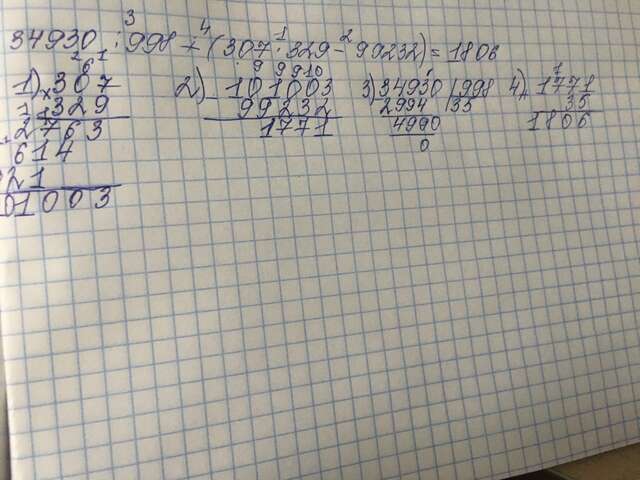 34930 : 998 + (307 · 329 - 99232) = 1806
3 4 1 2
1) × 307
329
2763
614
21
01003
2) - 101003
99232
1771
3) 34930 | 998
2994 | 35
4990
0
4) + 1771
35
1806